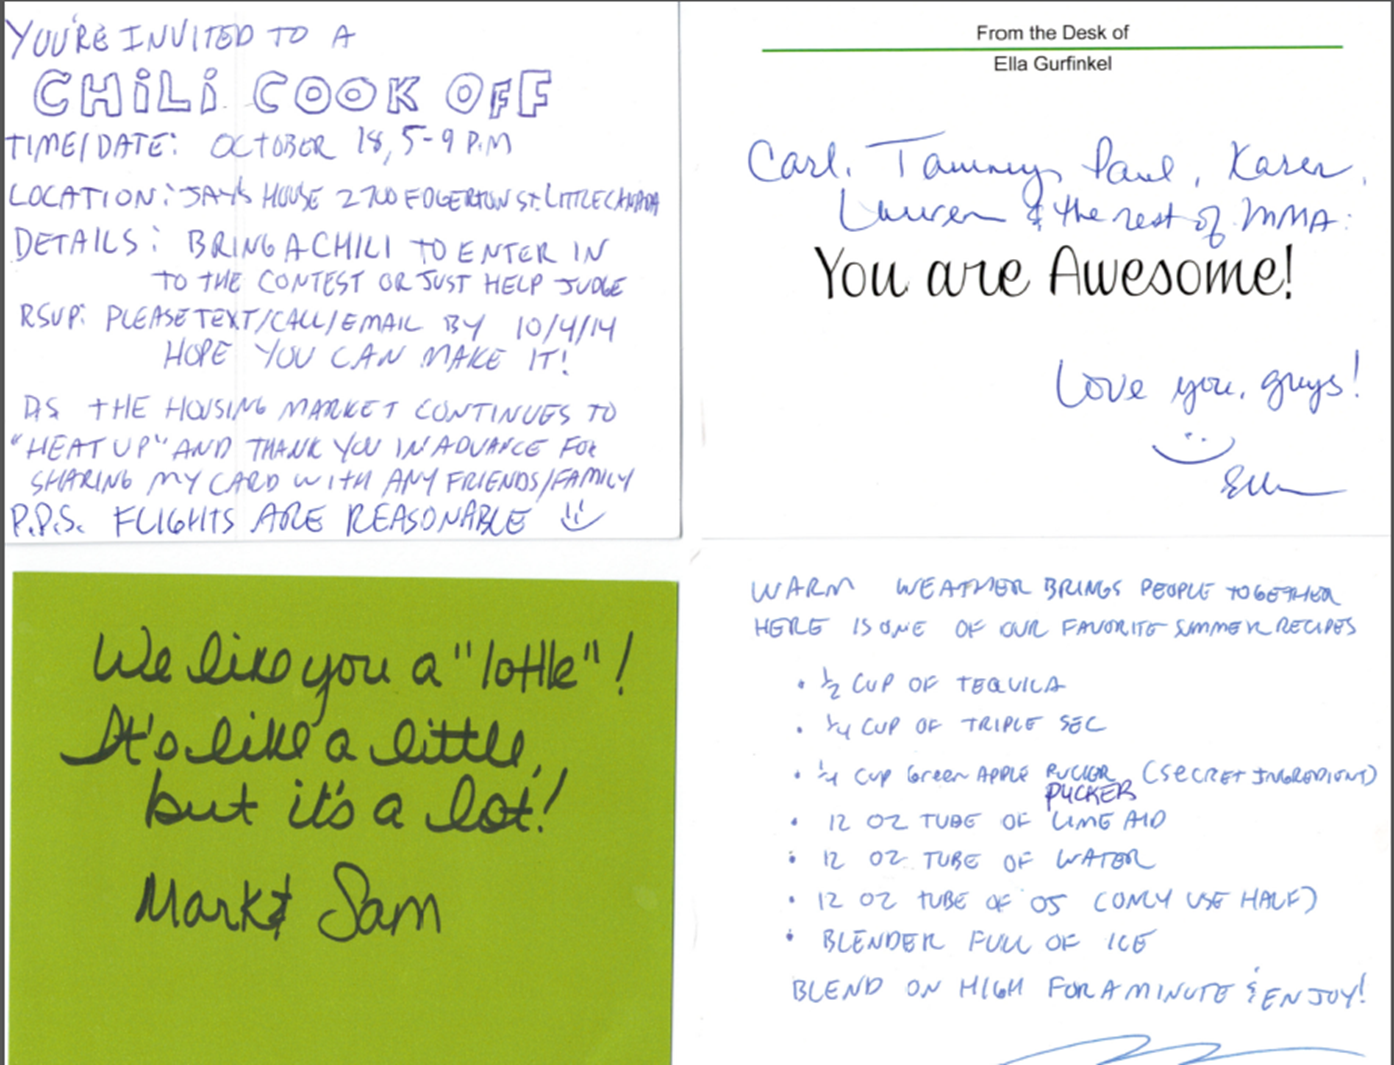 YOU'RE INVITED TO A
CHILI COOK OFF
TIME/DATE: OCTOBER 18, 5-9 P.M
LOCATION: JAY'S HOUSE 2700 EDGERTON ST. LITTLE CANADA
DETAILS: BRING A CHILI TO ENTER IN
TO THE CONTEST OR JUST HELP JUDGE
RSVP: PLEASE TEXT/CALL/EMAIL BY 10/4/14
HOPE YOU CAN MAKE IT!
P.S THE HOUSING MARKET CONTINUES TO
"HEAT UP" AND THANK YOU IN ADVANCE FOR
SHARING MY CARD WITH ANY FRIENDS/FAMILY
P.P.S. FLIGHTS ARE REASONABLE
From the Desk of
Ella Gurfinkel
Carl, Tammy, Paul, Karen,
Lauren & the rest of MMA:
You are Awesome!
Love you, guys!
Ella
We like you a "lottle"!
It's like a little,
but it's a lot!
Mark & Sam
WARM WEATHER BRINGS PEOPLE TOGETHER
HERE IS ONE OF OUR FAVORITE SUMMER RECIPES
• 1/2 CUP OF TEQUILA
• 1/4 CUP OF TRIPLE SEC
• 1/4 CUP Green APPLE PUCKER (SECRET INGREDIENT)
PUCKER
• 12 OZ TUBE OF LIME AID
• 12 OZ TUBE OF WATER
• 12 OZ TUBE OF OJ (ONLY USE HALF)
• BLENDER FULL OF ICE
BLEND ON HIGH FOR A MINUTE & ENJOY!